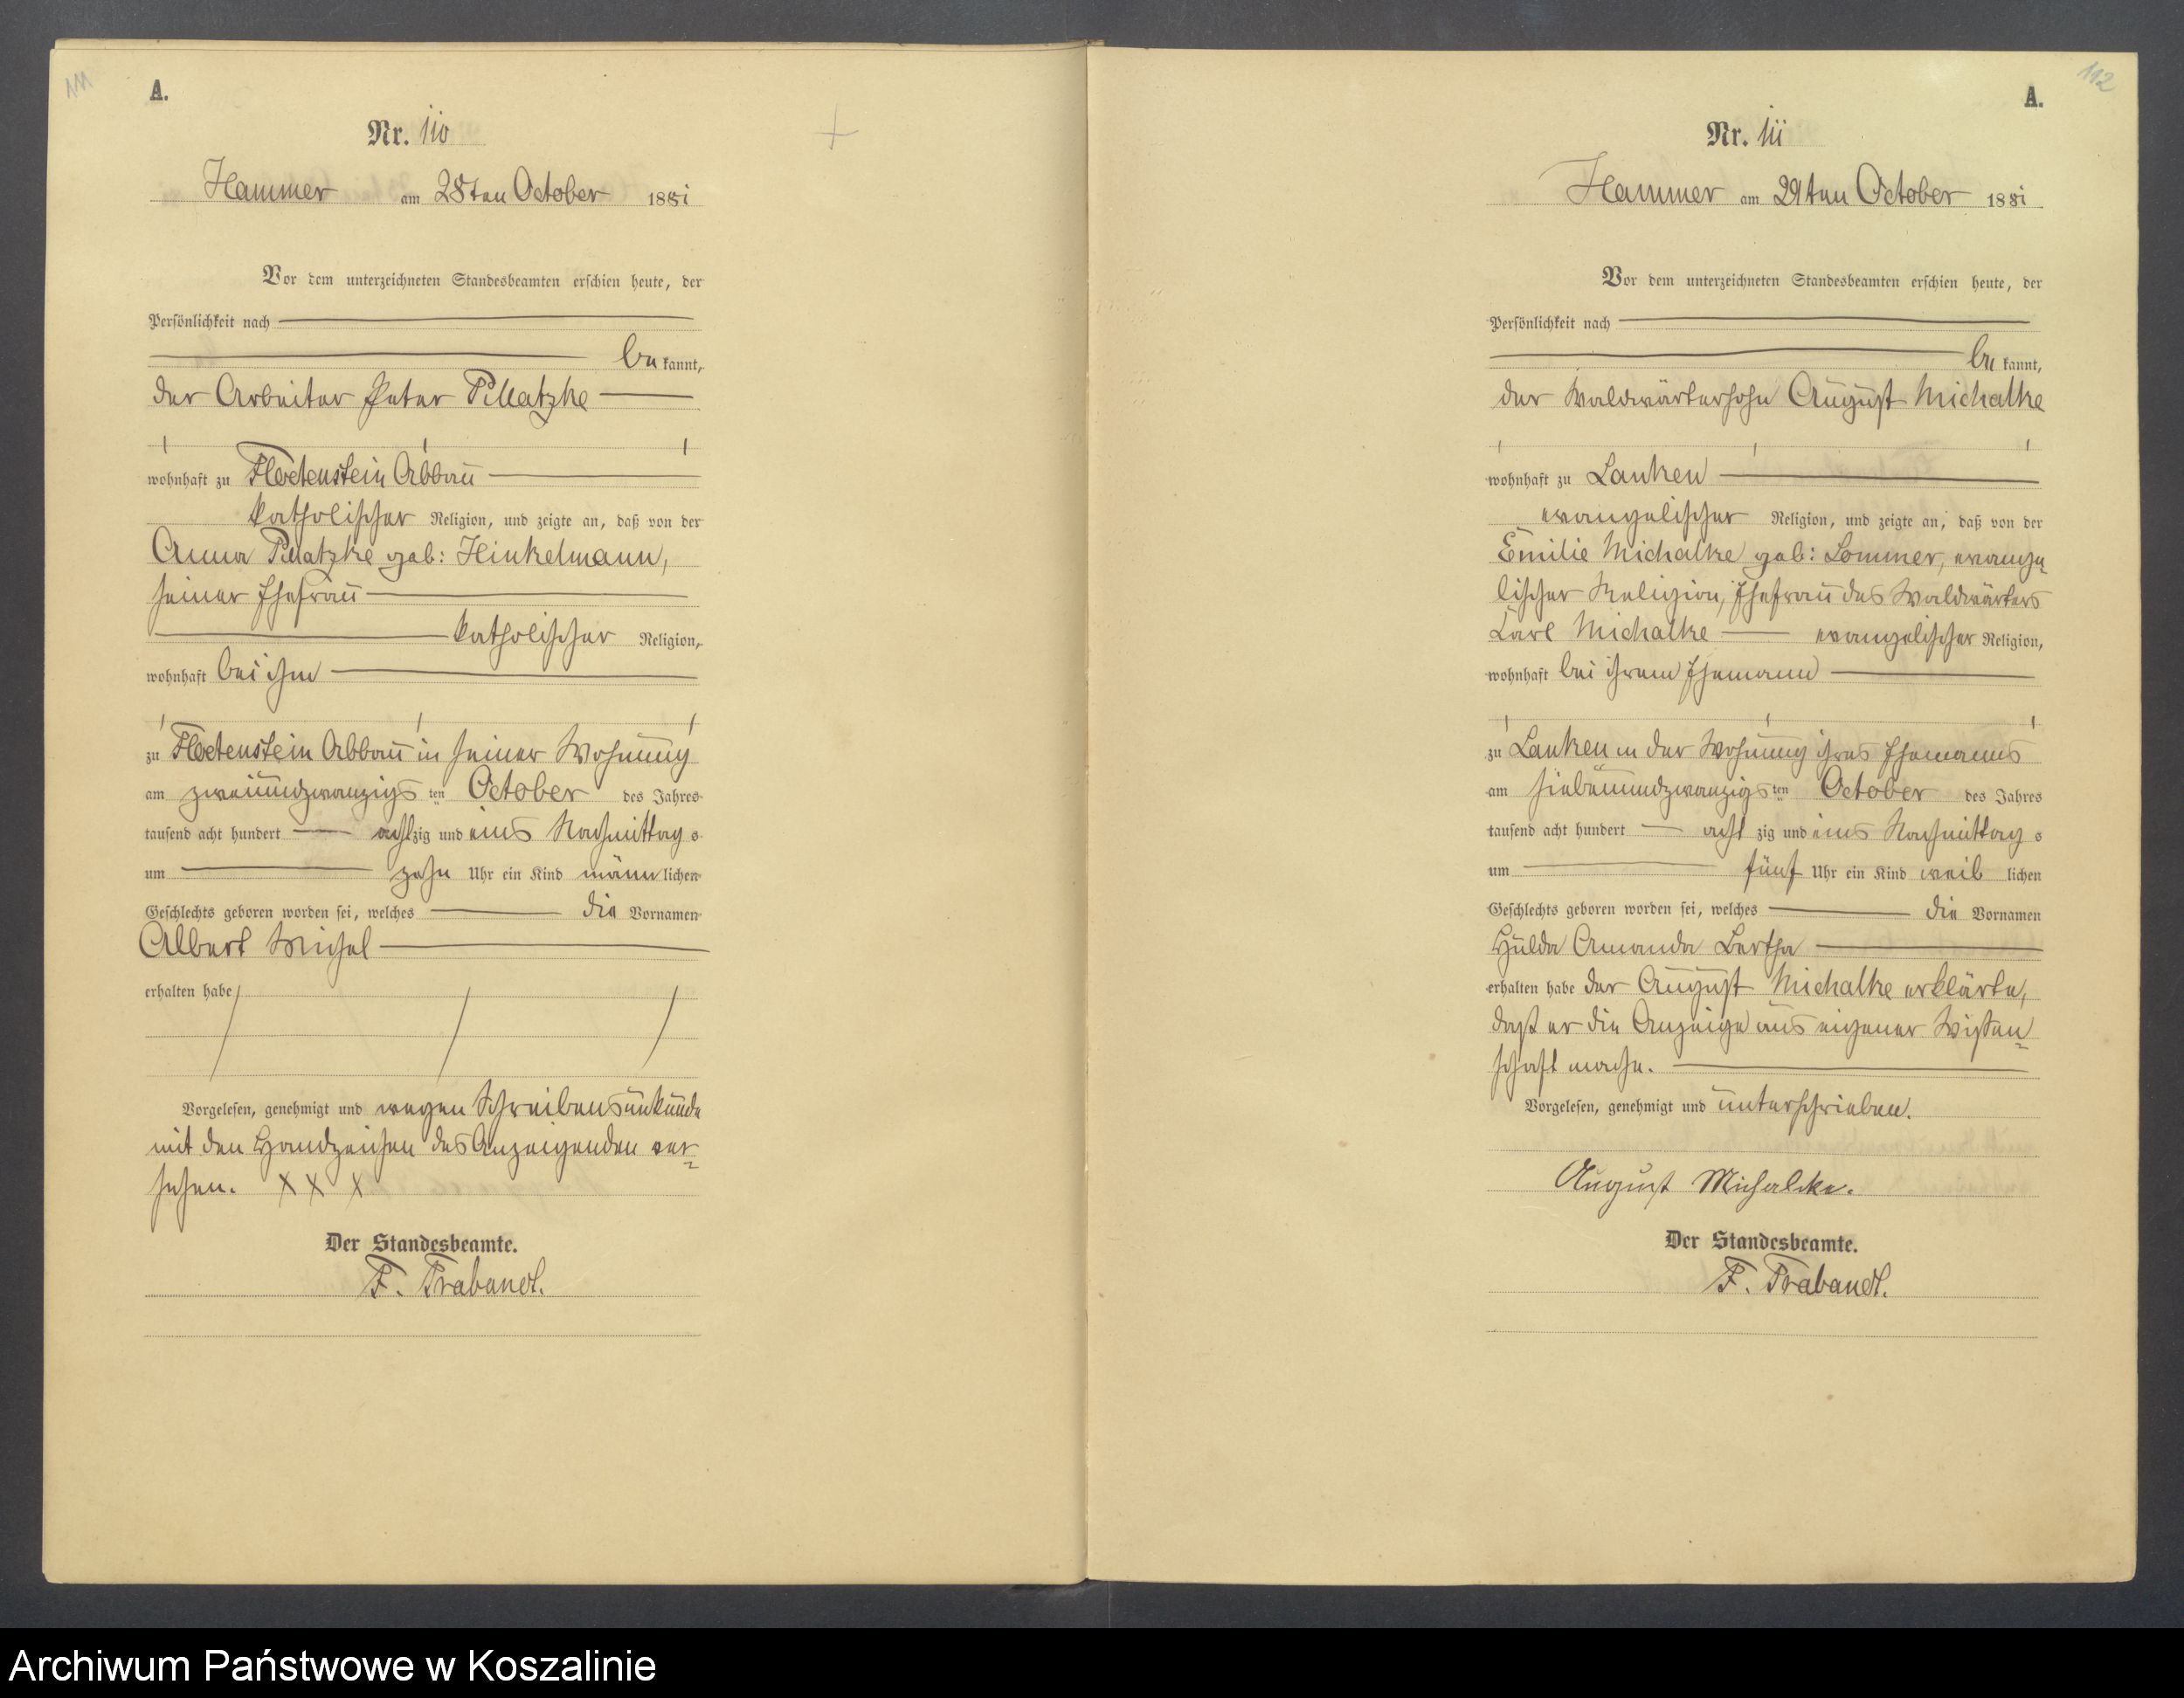 111
A.
Nr. 110
Hammer am 28ten October 1881
Vor dem unterzeichneten Standesbeamten erschien heute, der
Persönlichkeit nach
be kannt,
der Arbeiter Peter Pillatzke
wohnhaft zu Floetenstein Abbau
katholischer Religion, und zeigte an, daß von der
Anna Pillatzke geb: Hinkelmann,
seiner Ehefrau
katholischer Religion,
wohnhaft bei ihm
zu Floetenstein Abbau in seiner Wohnung
am zweiundzwanzigs ten October des Jahres
tausend acht hundert achtzig und eins Nachmittag s
um zehn Uhr ein Kind männ lichen
Geschlechts geboren worden sei, welches die Vornamen
Albert Michel
erhalten habe
Vorgelesen, genehmigt und wegen Schreibensunkunde
mit den Handzeichen des Anzeigenden ver-
sehen. X X X
Der Standesbeamte.
F. Trabandt.
112
A.
Nr. 111
Hammer am 29ten October 1881
Vor dem unterzeichneten Standesbeamten erschien heute, der
Persönlichkeit nach
be kannt,
der Waldwärtersohn August Michalke
wohnhaft zu Lanken
evangelischer Religion, und zeigte an, daß von der
Emilie Michalke geb: Lommer, evange-
lischer Religion, Ehefrau des Waldwärters
Carl Michalke evangelischer Religion,
wohnhaft bei ihrem Ehemann
zu Lanken in der Wohnung ihres Ehemanns
am siebenundzwanzigs ten October des Jahres
tausend acht hundert acht zig und eins Nachmittag s
um fünf Uhr ein Kind weib lichen
Geschlechts geboren worden sei, welches die Vornamen
Hulda Amanda Bertha
erhalten habe der August Michalke erklärte,
daß er die Anzeige aus eigener Wissen-
schaft mache.
Vorgelesen, genehmigt und unterschrieben.
August Michalcke.
Der Standesbeamte.
F. Trabandt.
Archiwum Państwowe w Koszalinie